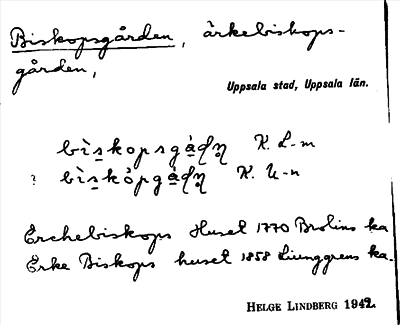 Biskopsgården, ärkebiskops-
gården,
Uppsala stad, Uppsala län.
bìskopsgàdn K. L-m
? bìskòpgàdn K. U-n
Erchebiskops Huset 1770 Brolins ka
Erke Biskops huset 1858 Ljunggrens ka.
HELGE LINDBERG 1942.